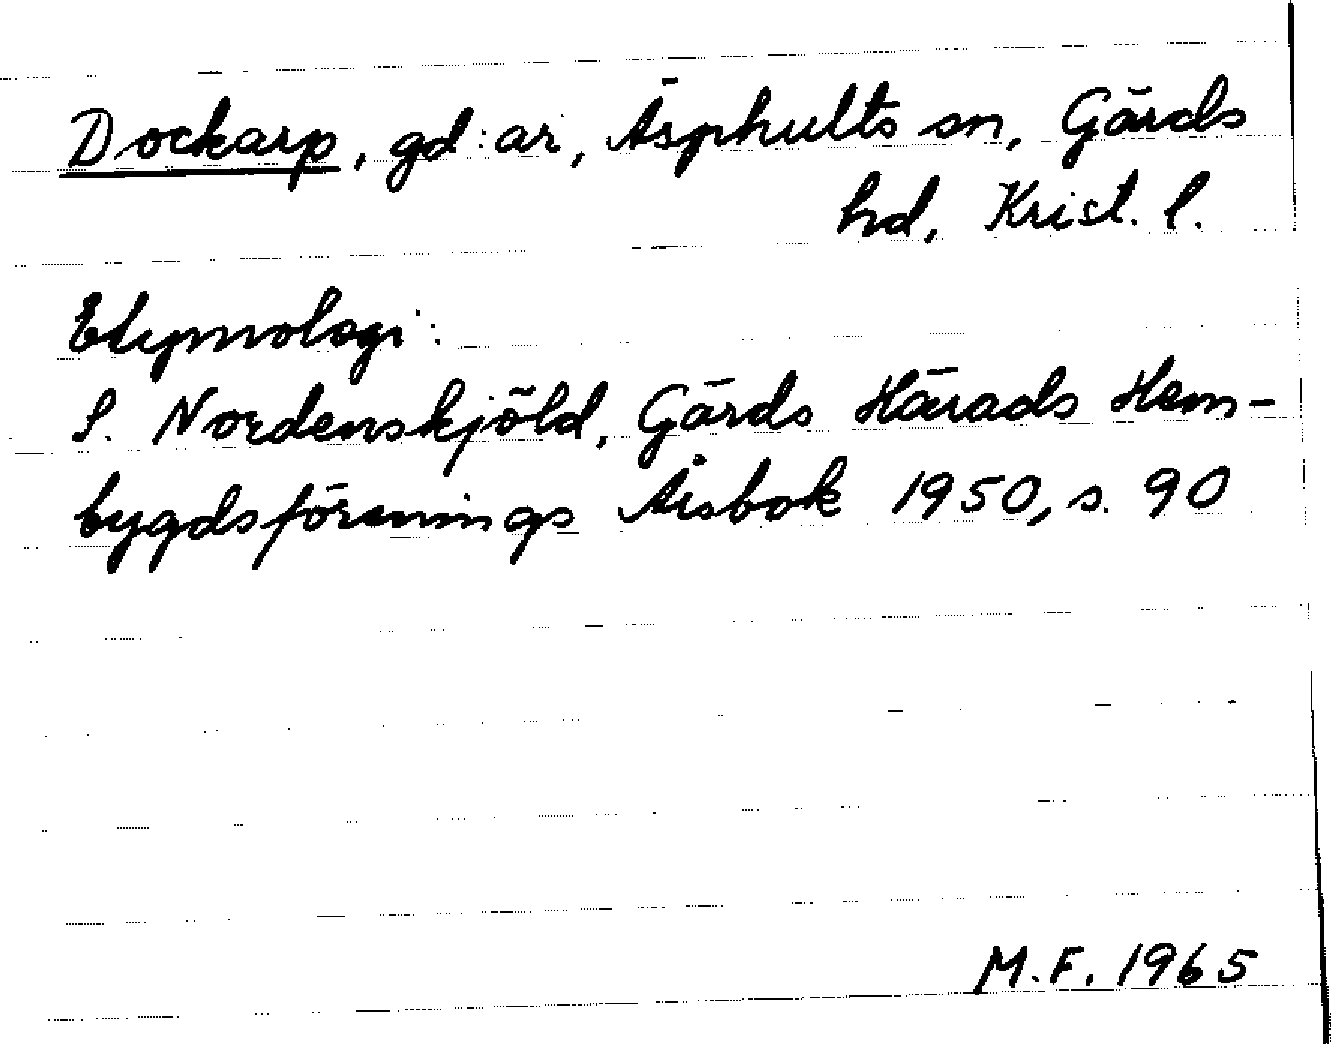 Dockarp, gd:ar, Äsphults sn, Gärds
hd, Krist. l.
Etymologi:
S. Nordenskjöld, Gärds Härads Hem-
bygdsförenings Årsbok 1950, s. 90
M.F. 1965